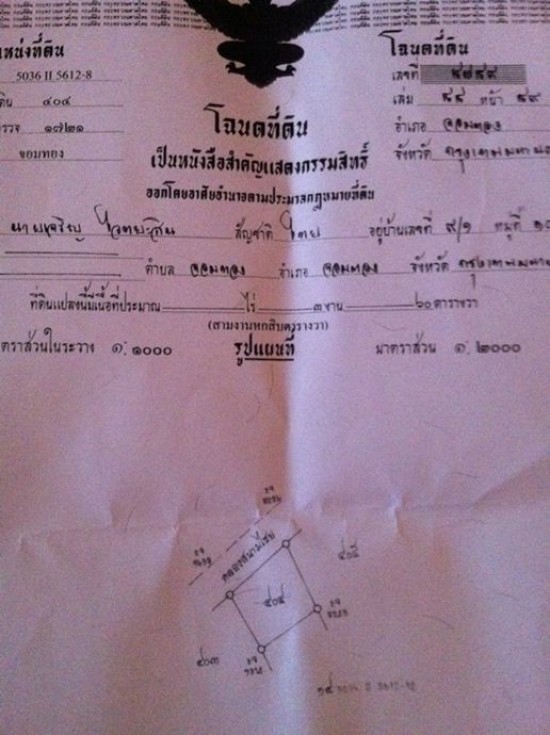 แหน่งที่ดิน
โฉนดที่ดิน
5036 II 5612-8
เลขที่
ดิน ๔๐๔
เล่ม ๔๙ หน้า ๔๙
รวจ ๑๗๒๑
โฉนดที่ดิน
อำเภอ จอมทอง
จอมทอง
เป็นหนังสือสำคัญแสดงกรรมสิทธิ์
จังหวัด กรุงเทพมหาน
ออกโดยอาศัยอำนาจตามประมวลกฎหมายที่ดิน
นายเจริญ สัญชาติ ไทย อยู่บ้านเลขที่ ๙/๑ หมู่ที่ ๑๐
ตำบล จอมทอง อำเภอ จอมทอง จังหวัด กรุงเทพมหา
ที่ดินแปลงนี้มีเนื้อที่ประมาณ ไร่ ๓ งาน ๖๐ ตารางวา
(สามงานหกสิบตารางวา)
ตราส่วนในระวาง ๑:๑๐๐๐ รูปแผนที่ มาตราส่วน ๑:๒๐๐๐
คลองสนามไชย
๔๐๕
๔๐๔
๔๐๓